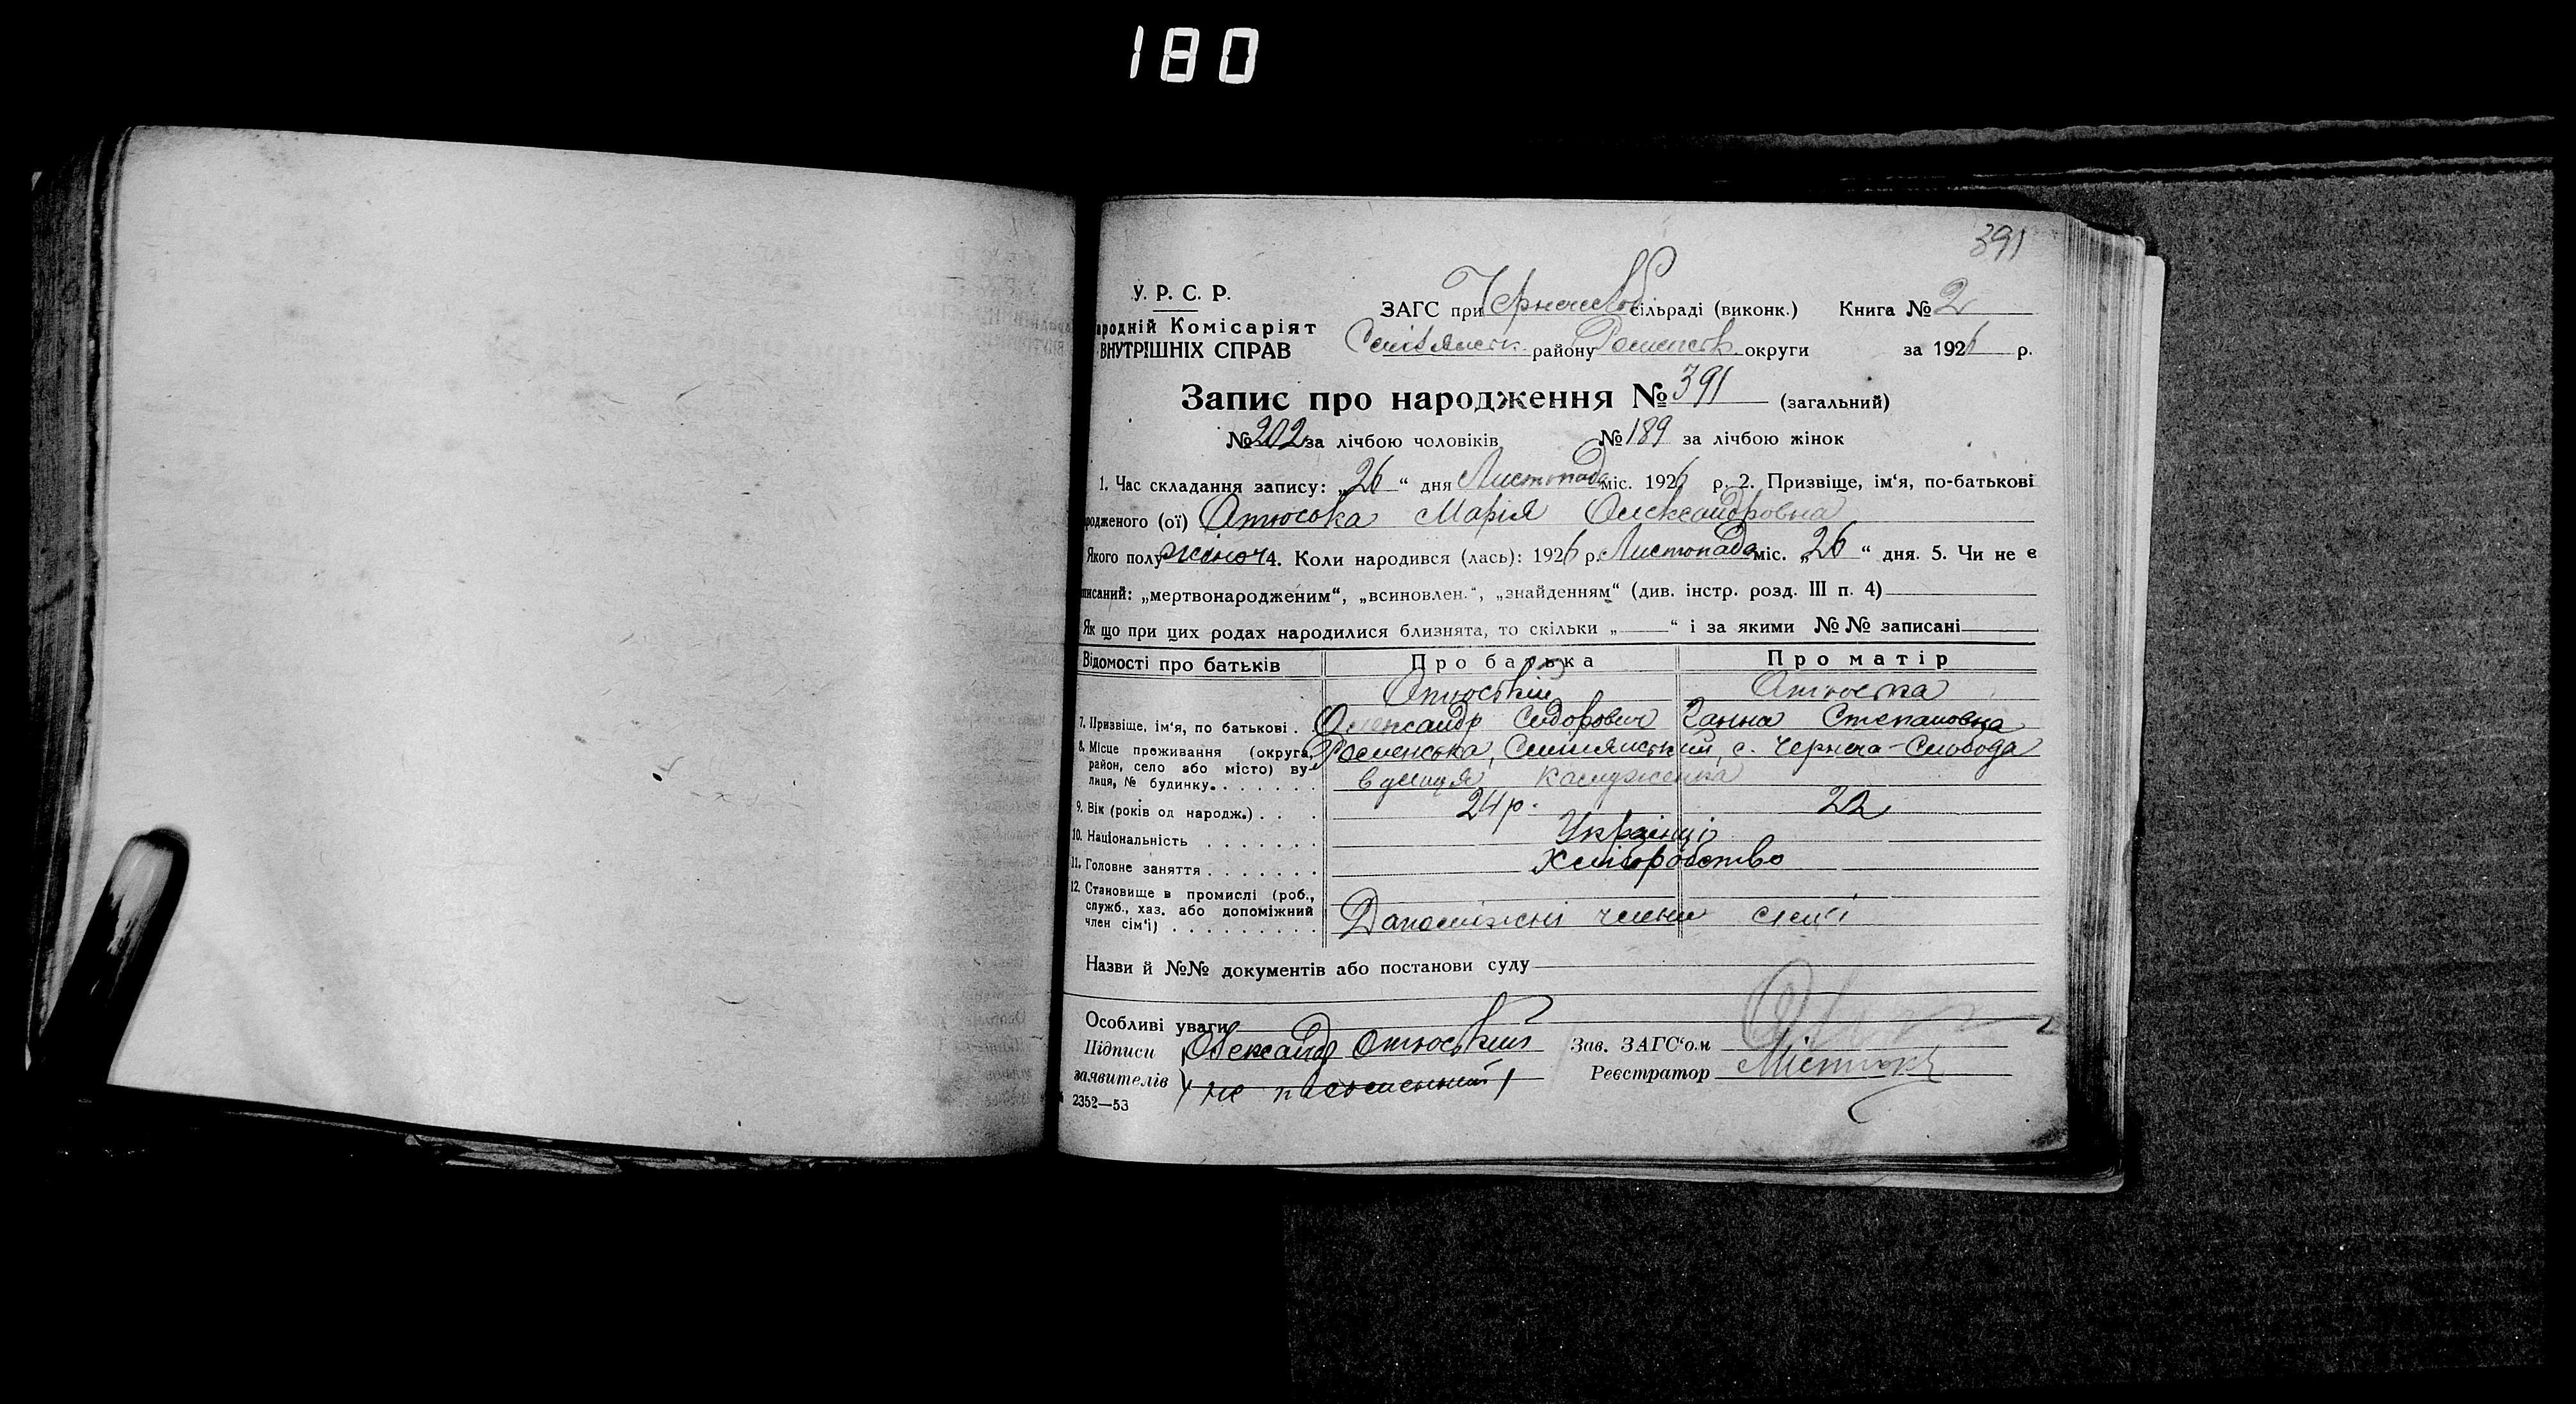 180
391
У. Р. С. Р.
ародній Комісаріят
ВНУТРІШНІХ СПРАВ
ЗАГС при Чернечеслоб сільраді (виконк.) Книга № 2
району Роменськ округи за 1926 р.
Запис про народження № 391 (загальний)
№ 202 за лічбою чоловіків № 189 за лічбою жінок
1. Час складання запису: „26“ дня Листопада міс. 1926 р. 2. Призвіще, ім‘я, по-батькові
родженого (ої) Атюська Марія Олександровна
Якого полу жіноч 4. Коли народився (лась): 1926 р. Листопада міс. „26“ дня. 5. Чи не є
писаний: „мертвонародженим“, „всиновлен.“, „знайденням“ (див. інстр. розд. III п. 4)
Як що при цих родах народилися близнята, то скільки „ “ і за якими №№ записані
Відомості про батьків Про батька Про матір
Атюський Атюська
7. Призвіще, ім‘я, по батькові . Олександр Сидорович Ганна Степановна
8. Місце проживання (округа, район, село або місто) вулиця, № будинку. Роменська, Смілянський, с. Чернеча-Слобода
вулиця
9. Вік (років од народж.) . . . 24 р. 22
10. Національність . . . . . . . Українці
11. Головне заняття . . . . . . . Хліборобство
12. Становище в промислі (роб., служб., хаз. або допоміжний член сім‘ї) . . . . . . . . . Дапоміжні члени сем‘ї
Назви й №№ документів або постанови суду
Особливі уваги
Підписи Олександр Атюський Зав. ЗАГС‘ом
заявителів не письменний Реєстратор
2352—53